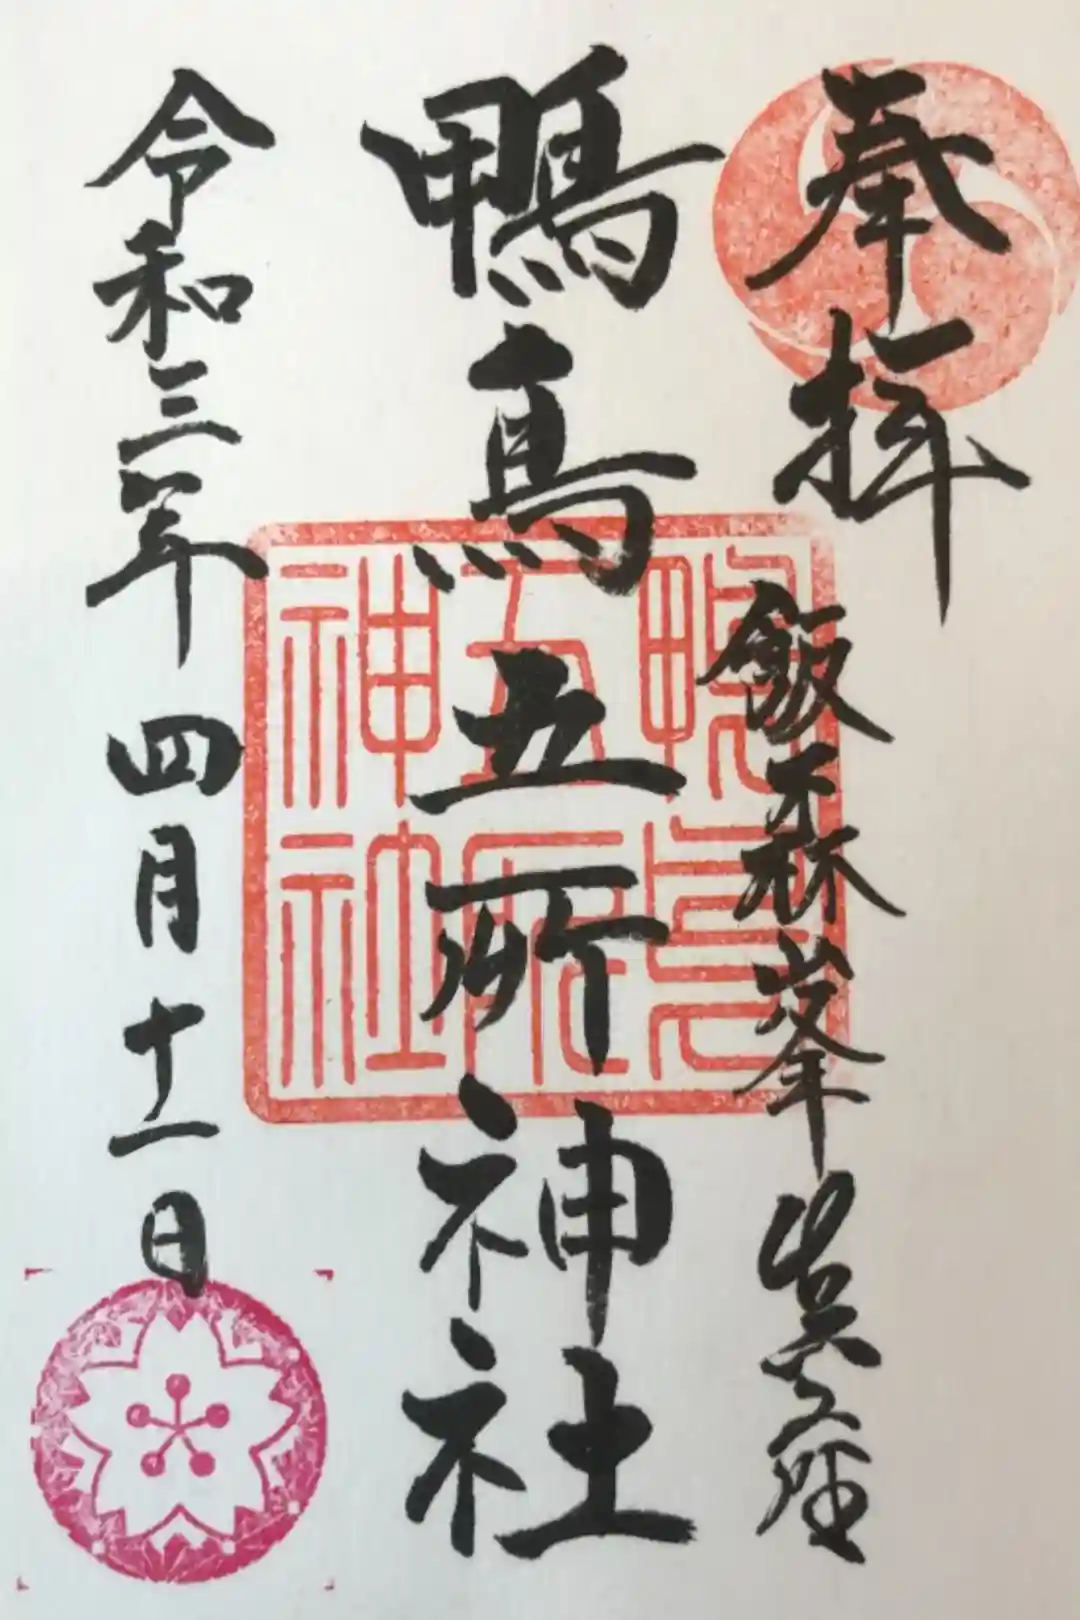 奉拝
飯森峯出興座
鴨鳥五所神社
鴨鳥五所神社
令和三年四月十一日